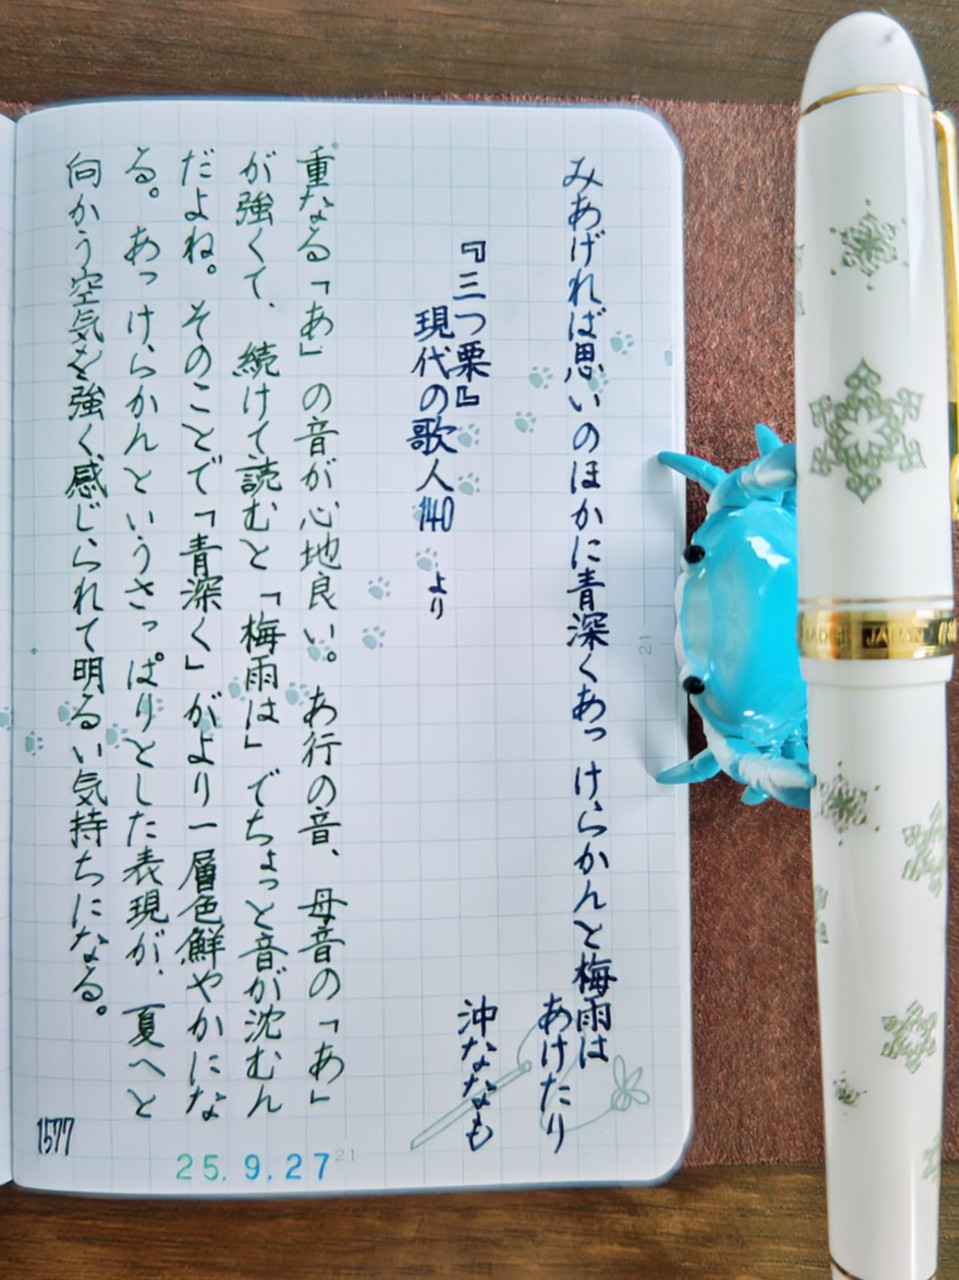 みあげれば思いのほかに青深くあっけらかんと梅雨は
あけたり
沖ななも
『三つ栗』
現代の歌人140
より
重なる「あ」の音が心地良い。あ行の音、母音の「あ」
が強くて、続けて読むと「梅雨は」でちょっと音が沈むん
だよね。そのことで「青深く」がより一層色鮮やかにな
る。あっけらかんというさっぱりとした表現が、夏へと
向かう空気を強く感じられて明るい気持ちになる。
1577
25.9.27
21
21
JAPAN